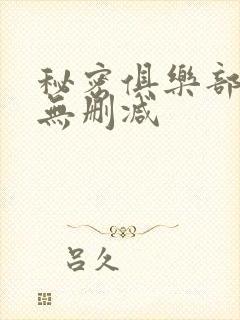 秘密俱樂部
無刪减
呂久